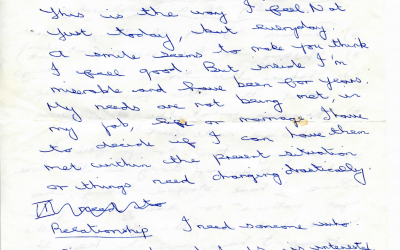 This is the way I feel. Not
just today, but everyday.
A smile seems to make you think
I feel good. But inside I'm
miserable and have been for years.
My needs are not being met, in
my job, life or marriage. I have
to decide if I can have them
met within the present situation
or things need changing drastically.
I need to
Relationship I need someone who